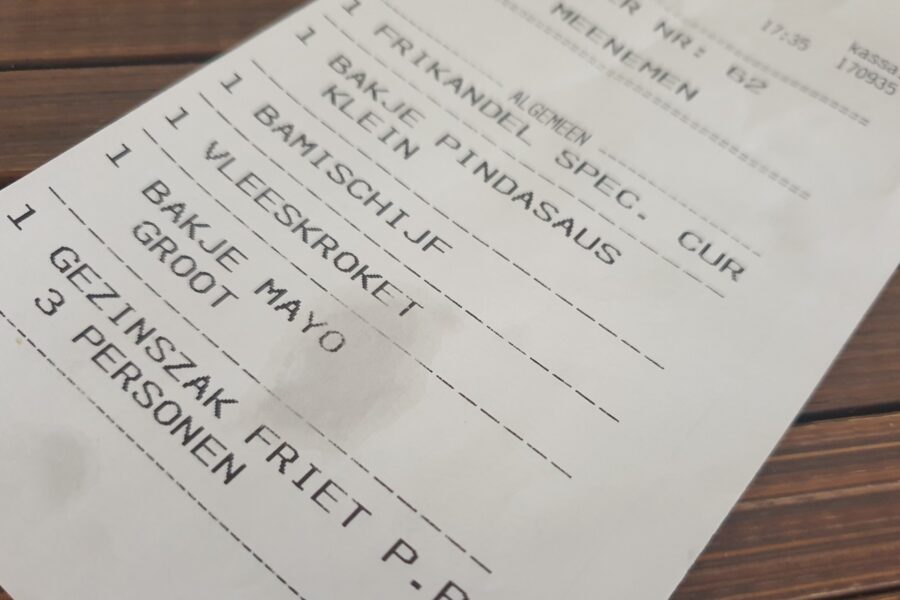 17:35 kassa
170935
R NR: 62
MEENEMEN
ALGEMEEN
1 FRIKANDEL SPEC. CUR
1 BAKJE PINDASAUS
KLEIN
1 BAMISCHIJF
1 VLEESKROKET
1 BAKJE MAYO
GROOT
1 GEZINSZAK FRIET P.P
3 PERSONEN